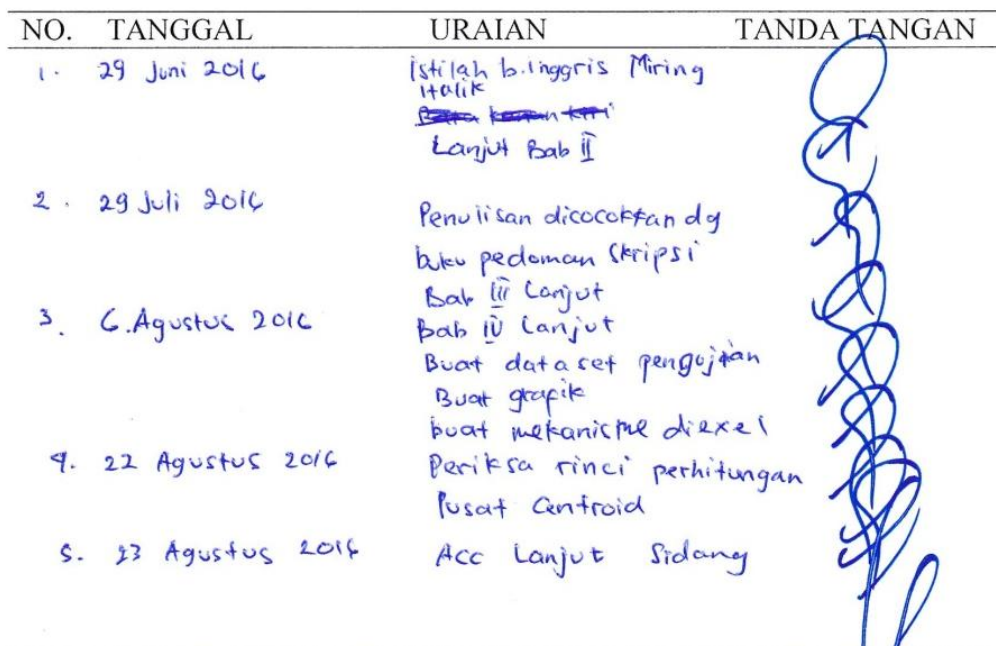 NO. TANGGAL URAIAN TANDA TANGAN
1. 29 Juni 2016 istilah b.inggris Miring
italik
Lanjut Bab II
2. 29 Juli 2016 Penulisan dicocokkan dg
buku pedoman Skripsi
Bab III Lanjut
3. 6.Agustus 2016 Bab IV Lanjut
Buat data set pengujian
Buat grafik
buat mekanisme diexel
4. 22 Agustus 2016 Periksa rinci perhitungan
Pusat Centroid
5. 23 Agustus 2016 Acc Lanjut Sidang